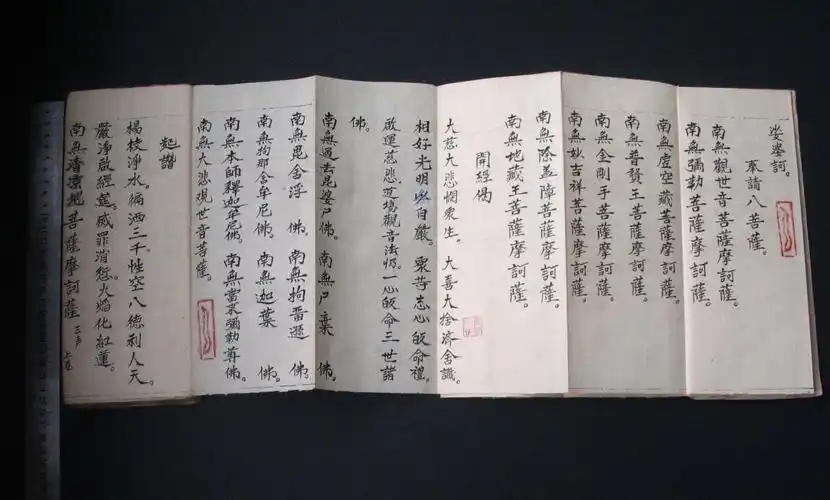 娑婆訶。
奉請八菩薩。
南無觀世音菩薩摩訶薩。
南無彌勒菩薩摩訶薩。
南無虛空藏菩薩摩訶薩。
南無普賢王菩薩摩訶薩。
南無金剛手菩薩摩訶薩。
南無妙吉祥菩薩摩訶薩。
南無除盖障菩薩摩訶薩。
南無地藏王菩薩摩訶薩。
開經偈
大慈大悲憫衆生。大喜大捨濟含識。
相好光明以自嚴。衆等志心皈命禮。
啟運慈悲道場觀音法懺。一心皈命三世諸
佛。
南無過去毘婆尸佛。南無尸棄佛。
南無毘舍浮佛。南無拘留孫佛。
南無拘那舍牟尼佛。南無迦葉佛。
南無本師釋迦牟尼佛。南無當來彌勒尊佛。
南無大悲觀世音菩薩。
起讚
楊枝淨水。徧洒三千。性空八德利人天。
嚴淨啟經筵。滅罪消愆。火焰化紅蓮。
南無清涼地菩薩摩訶薩三声